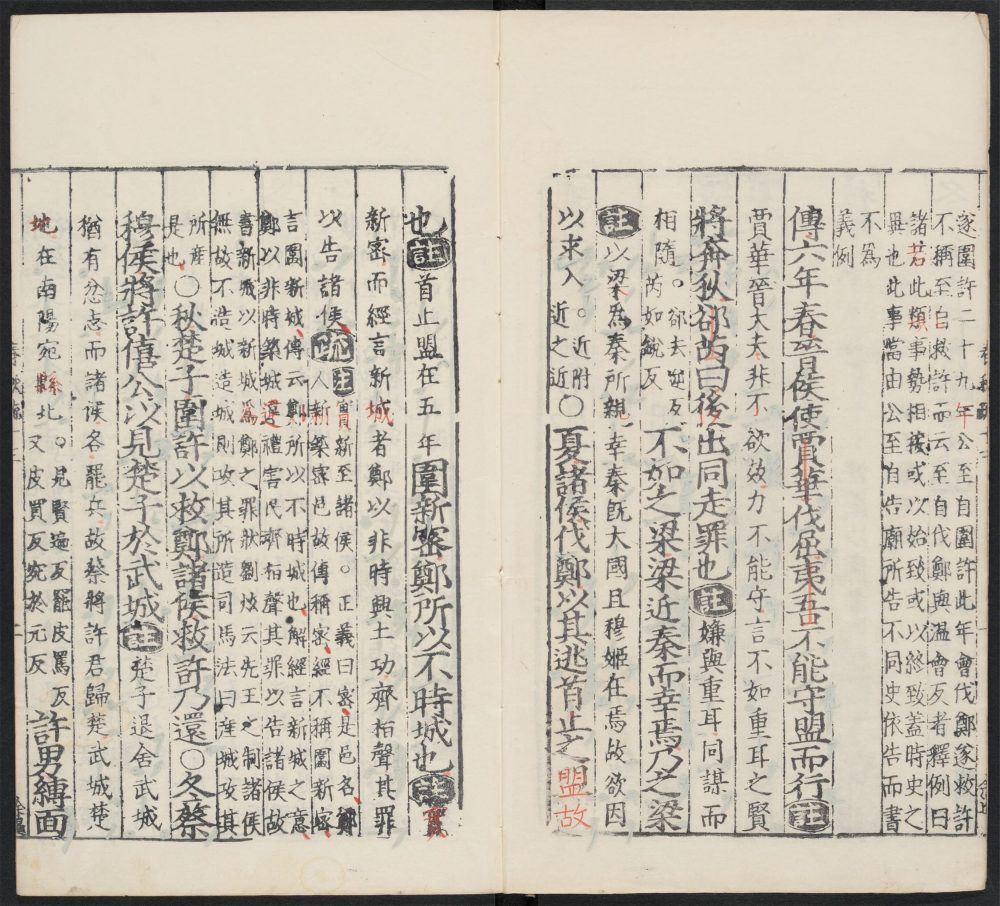 遂圍許二十九年公至自圍許此年會伐鄭遂救許
不稱至自救許而云至自伐鄭與溫會反者釋例曰
諸若此類事勢相接或以始致或以終致蓋時史之
異也此事當由公至自告廟所告不同史依告而書
不為
義例
傳六年春晉侯使賈華伐屈夷吾不能守盟而行註
賈華晉大夫非不欲效力不能守言不如重耳之賢
將奔狄郤芮曰後出同走罪也註嫌與重耳同謀而
相隨。郤去逆反芮如銳反不如之梁梁近秦而幸焉乃之梁
註以梁為秦所親幸秦既大國且穆姬在焉故欲因
以求入。近附近之近〇夏諸侯伐鄭以其逃首止之盟故
也註首止盟在五年圍新密鄭所以不時城也註實
新密而經言新城者鄭以非時興土功齊桓聲其罪
以告諸侯疏註實新至諸侯。正義曰密是邑名鄭
人新築密邑故傳稱密經不稱圍新密
言圍新城傳云鄭所以不時城也解經言新城之意
鄭以非時築城違禮害民齊桓聲其罪以告諸侯故
書新城以新城為鄭之罪狀劉炫云先王之制諸侯
無故不造城造城則攻其所造司馬法曰產城攻其
所產
是也〇秋楚子圍許以救鄭諸侯救許乃還〇冬蔡
穆侯將許僖公以見楚子於武城註楚子退舍武城
猶有忿志而諸侯各罷兵故蔡將許君歸楚武城楚
地在南陽宛縣北。見賢遍反罷皮罵反又皮買反宛於元反許男縛面